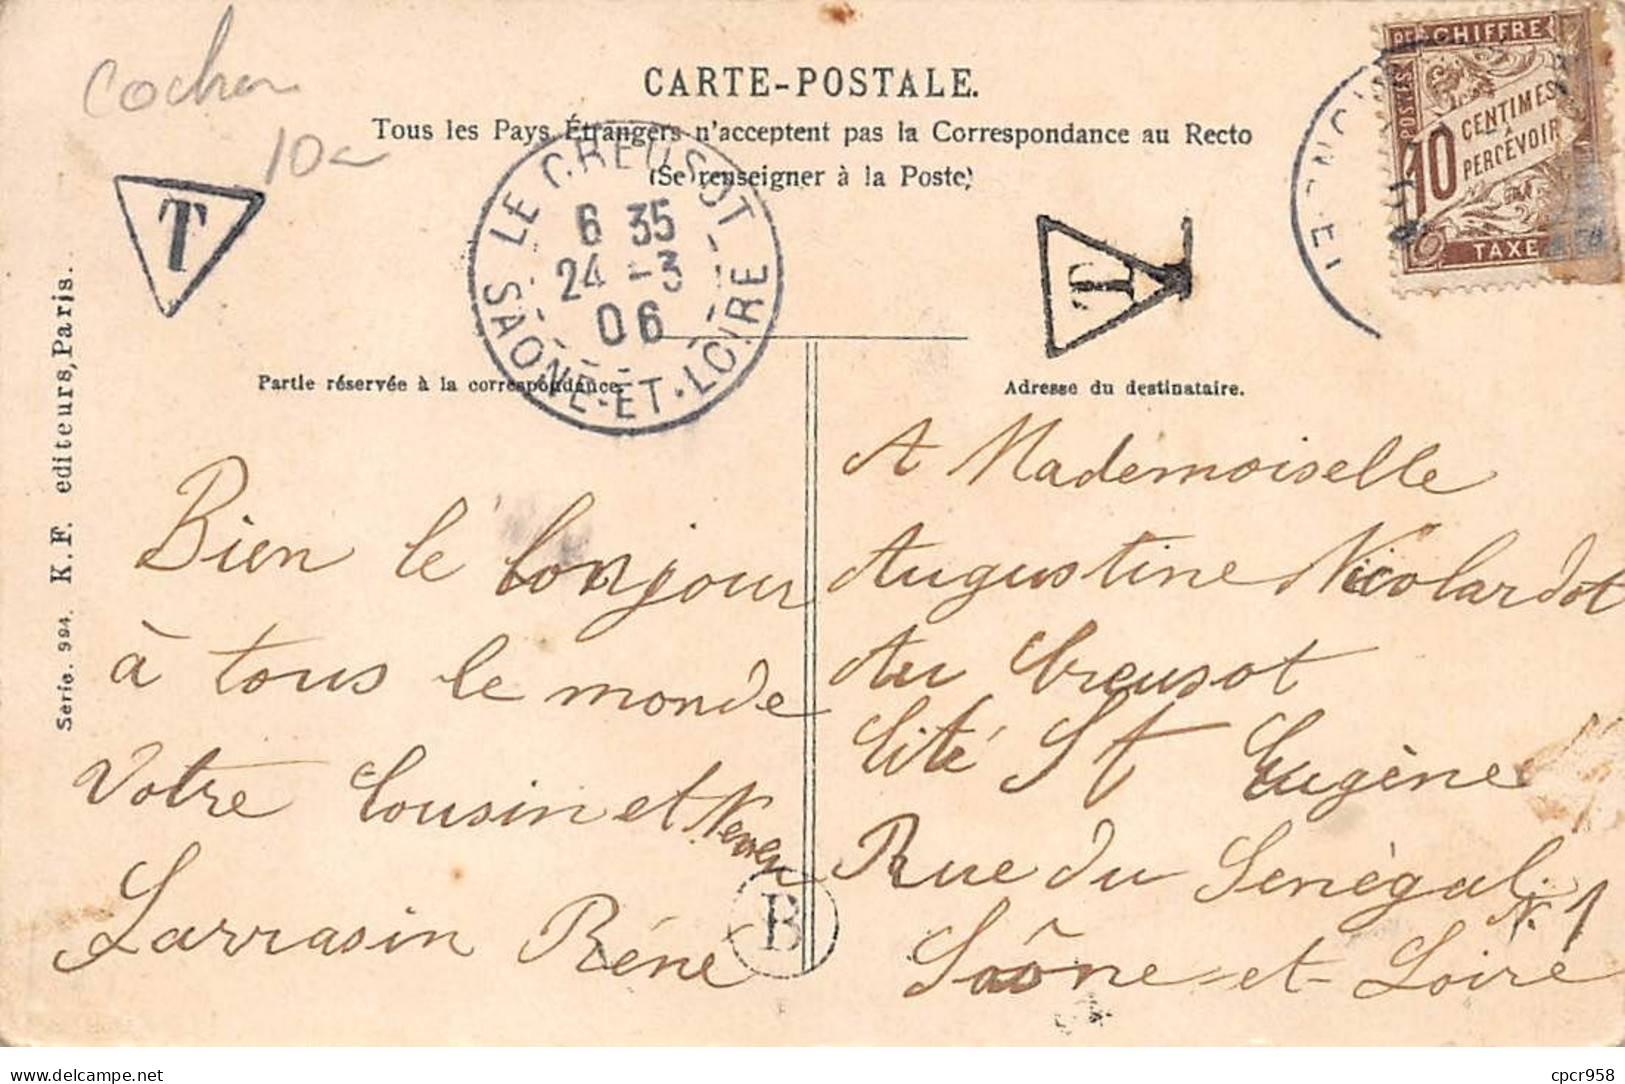 cocher
10
CARTE-POSTALE.
Tous les Pays Étrangers n'acceptent pas la Correspondance au Recto
(Se renseigner à la Poste)
T
T
LE CREUSOT
6 35
24 -3
06
SAONE-ET-LOIRE
POSTES
CHIFFRE
10
CENTIMES
À
PERCEVOIR
TAXE
Partie réservée à la correspondance.
Adresse du destinataire.
Série. 994. K.F. editeurs, Paris.
Bien le bonjour
à tous le monde
Votre Cousin et Neveu
Larrasin Réné
B
A Mademoiselle
Augustine Nicolardot
Au Creusot
Cité St Eugène
Rue du Senégal
N. 1
Saône-et-Loire
delcampe.net
cpcr958